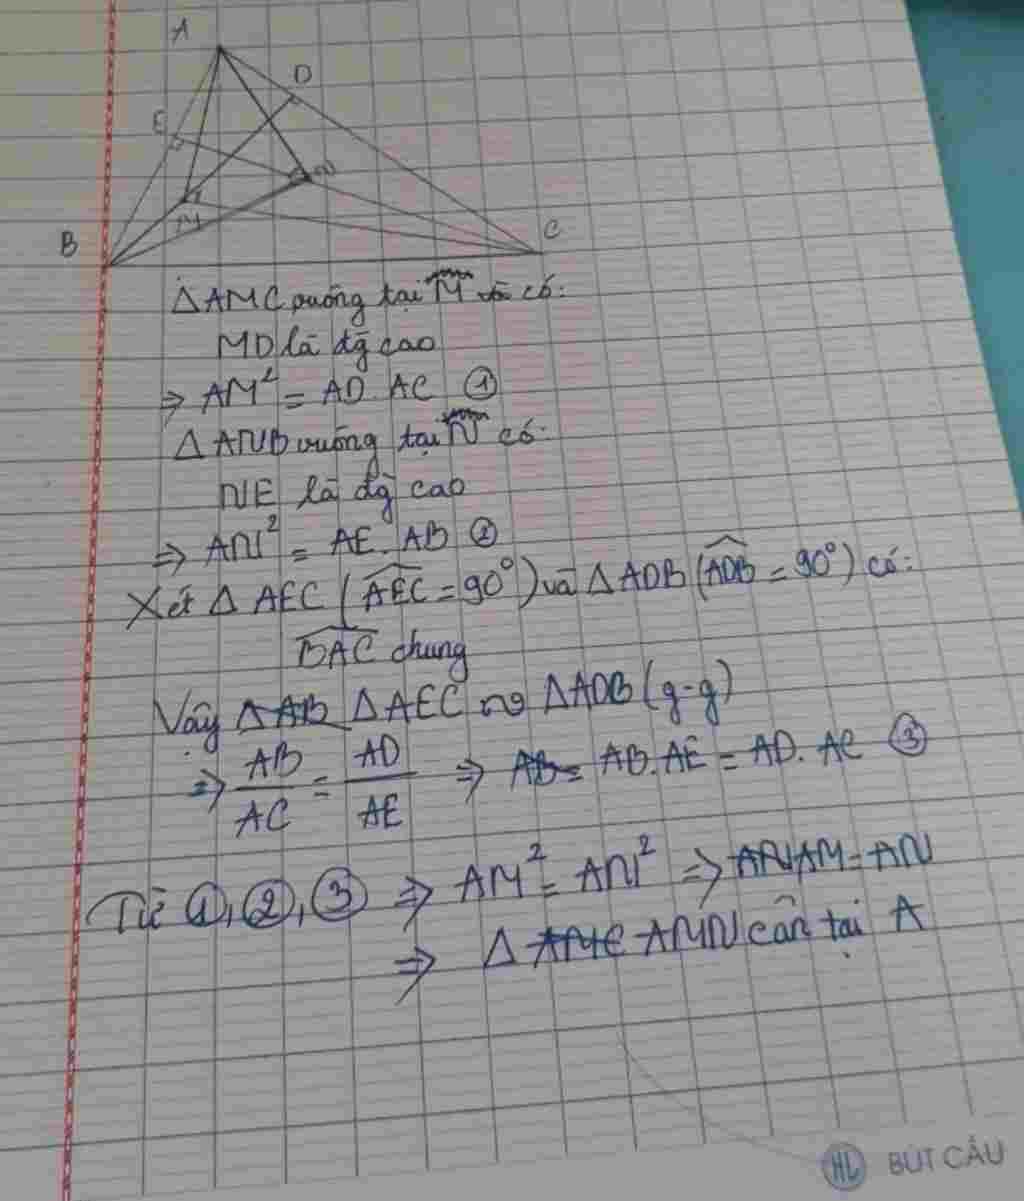 A
D
E
N
M
B
C
△AMC vuông tại M có:
MD là đg cao
⇒ AM² = AD. AC ①
△ANB vuông tại N có:
NE là đg cao
⇒ AN² = AE. AB ②
Xét △ AEC (AEC = 90°) và △ADB (ADB = 90°) có:
BAC chung
Vậy △AB △AEC ~ △ADB (g-g)
⇒ AB/AC = AD/AE ⇒ AB= AB.AE = AD. AC ③
Từ ①, ②, ③ ⇒ AM² = AN² ⇒ AN AM = AN
⇒ △ AMC AMN cân tại A
HL BÚT CẦU